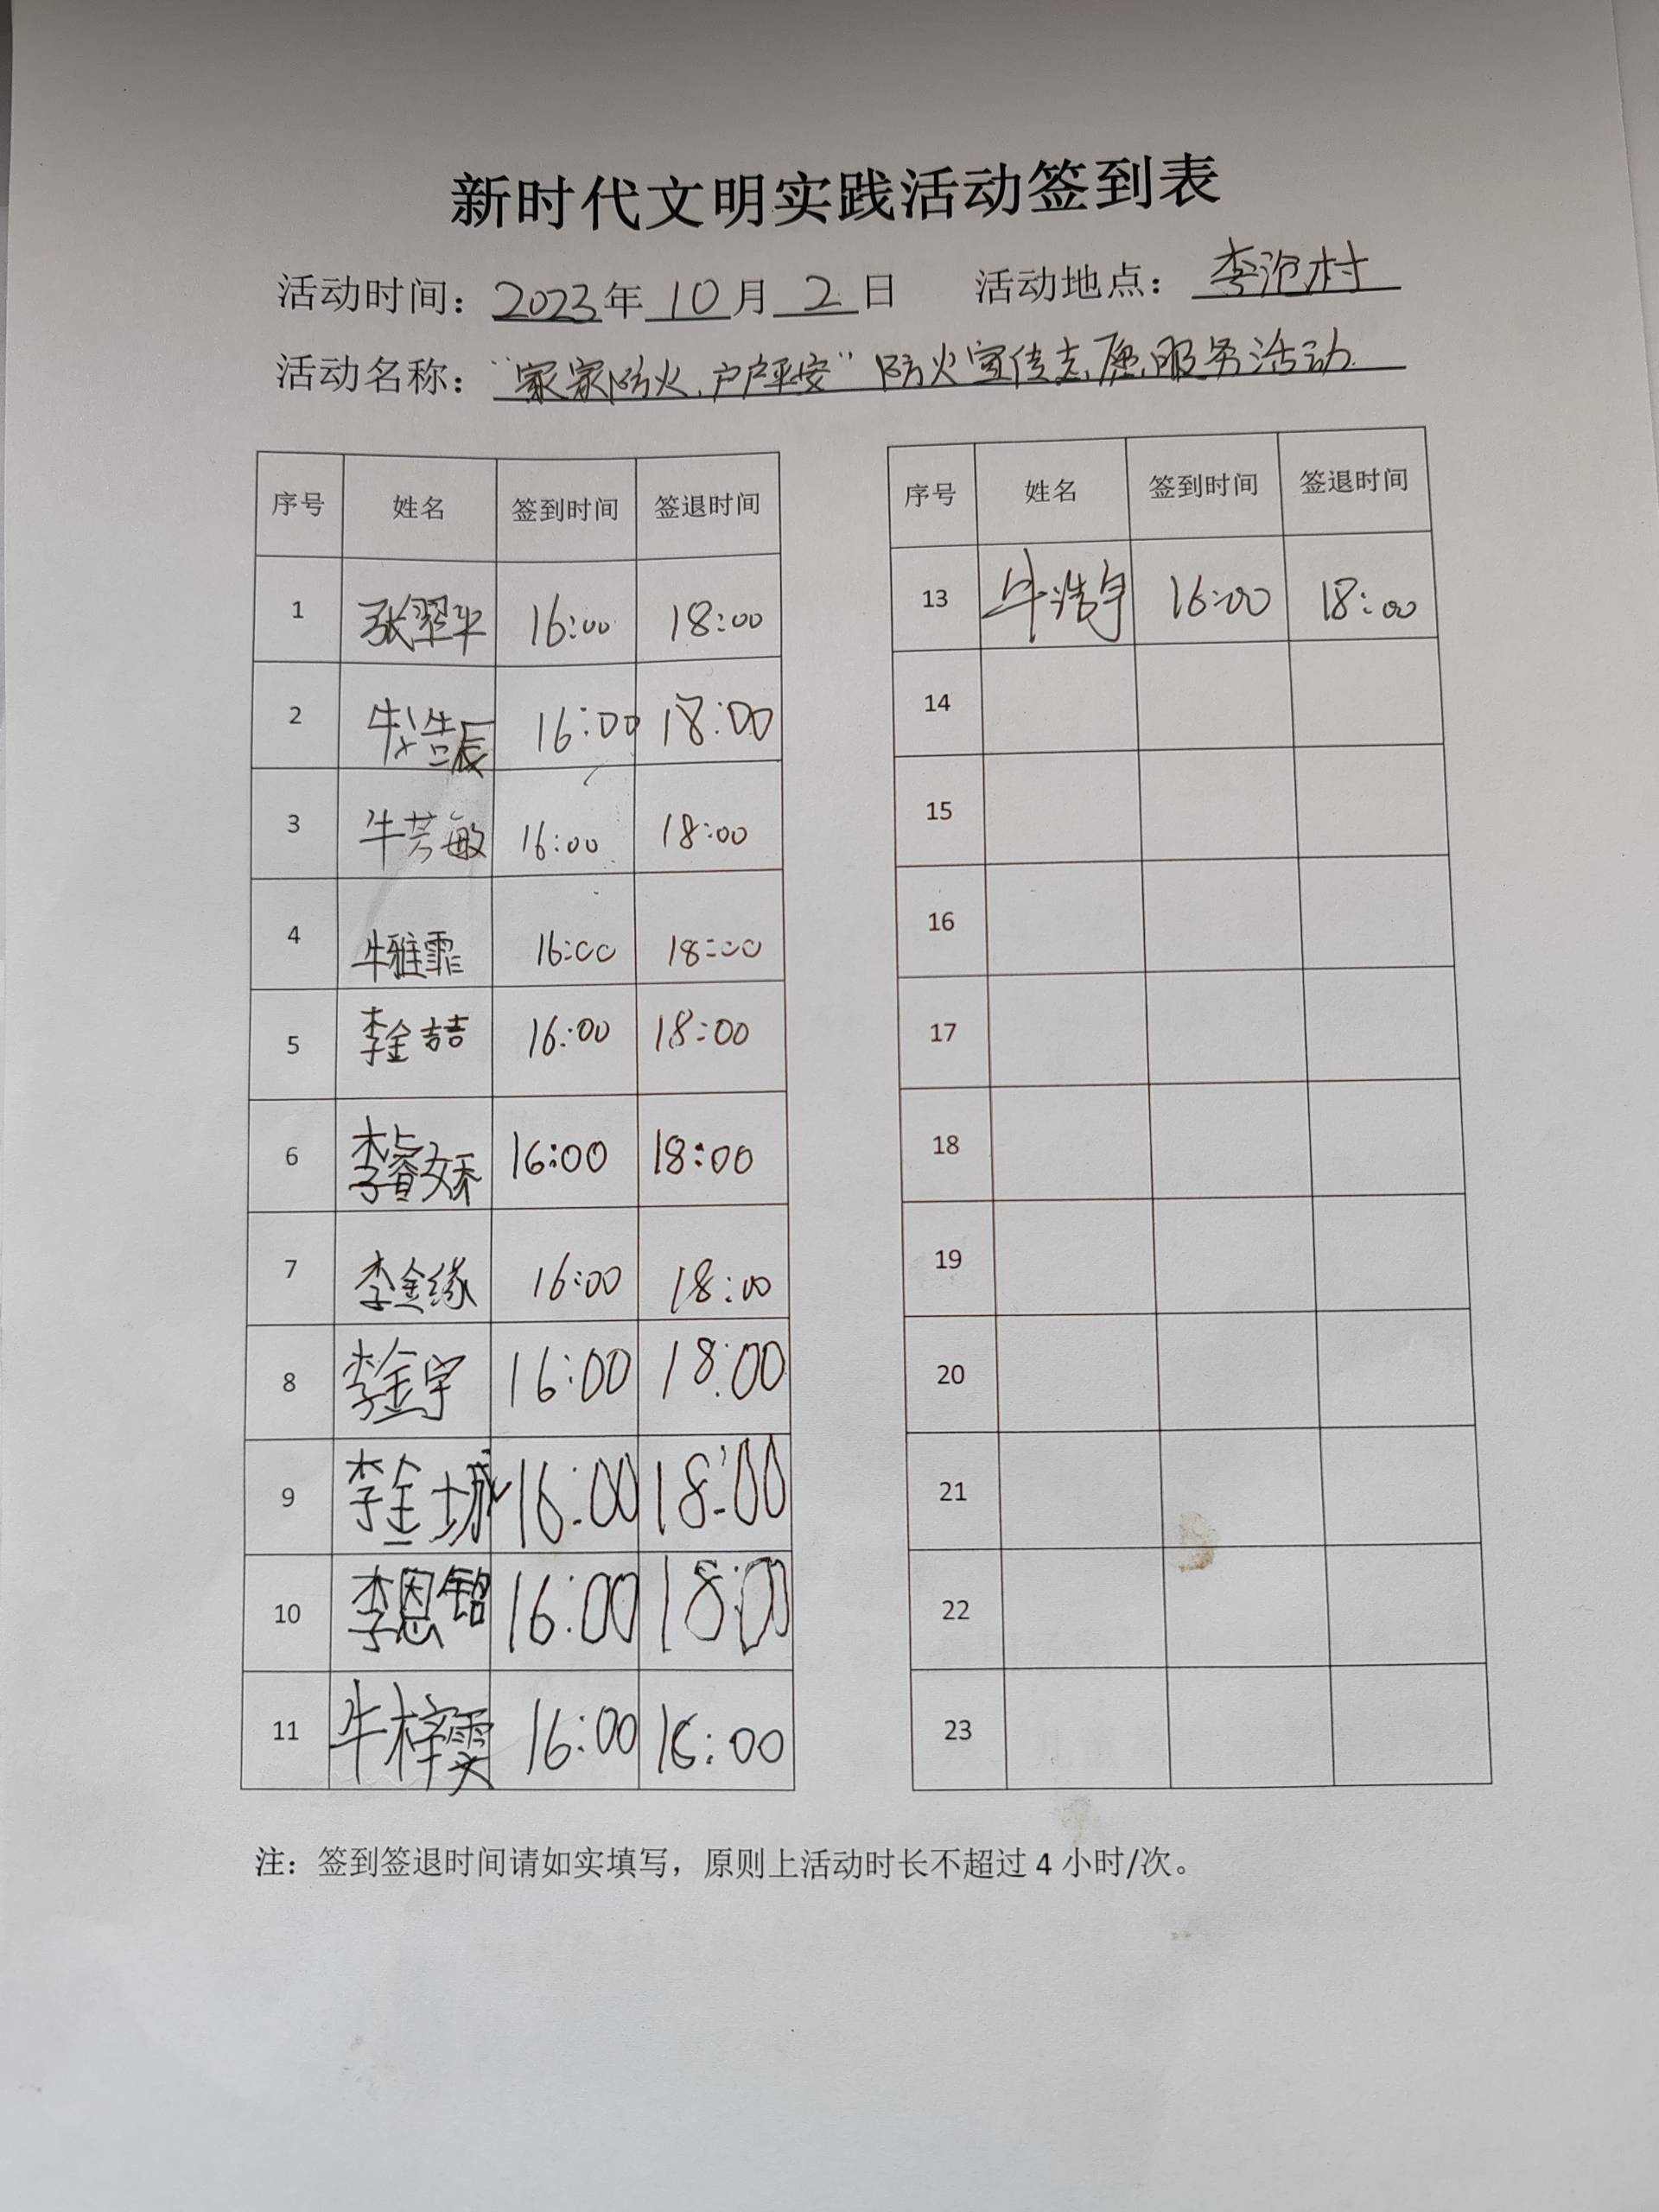 新时代文明实践活动签到表
活动时间：2023年10月2日 活动地点：李沧村
活动名称："家家防火、户户平安"防火宣传志愿服务活动
序号 姓名 签到时间 签退时间
1 张翠平 16:00 18:00
2 牛浩辰 16:00 18:00
3 牛芳敏 16:00 18:00
4 牛雅霏 16:00 18:00
5 李金喆 16:00 18:00
6 李睿 16:00 18:00
7 李金缘 16:00 18:00
8 李金宇 16:00 18:00
9 李金城 16:00 18:00
10 李恩铭 16:00 18:00
11 牛梓雯 16:00 18:00
序号 姓名 签到时间 签退时间
13 牛浩宇 16:00 18:00
14
15
16
17
18
19
20
21
22
23
注：签到签退时间请如实填写，原则上活动时长不超过 4 小时/次。